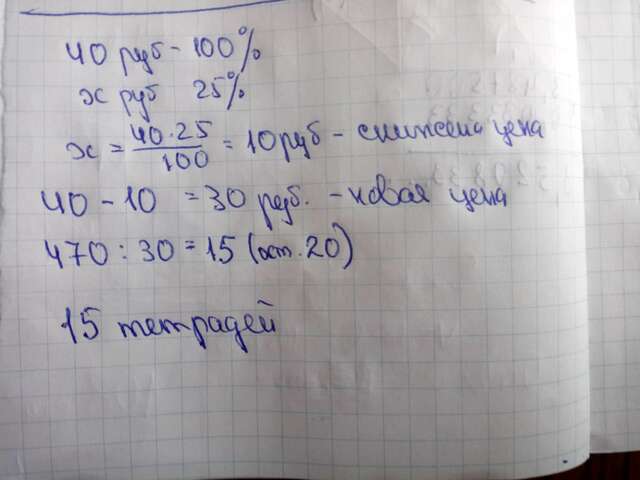 40 руб - 100%
x руб 25%
x = 40·25/100 = 10 руб - снижена цена
40 - 10 = 30 руб. - новая цена
470 : 30 = 15 (ост. 20)
15 тетрадей